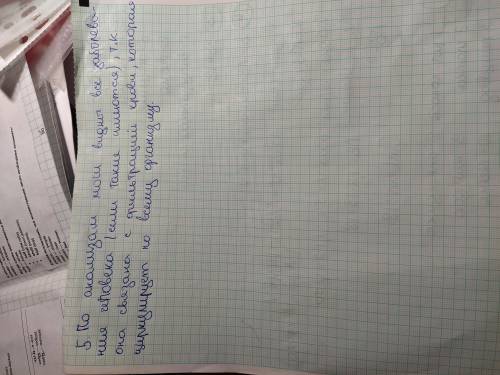 5. По анализам мочи видны все заболева-
ния человека (если такие имеются), т.к
она связана с фильтрацией крови, которая
циркулирует по всему организму.